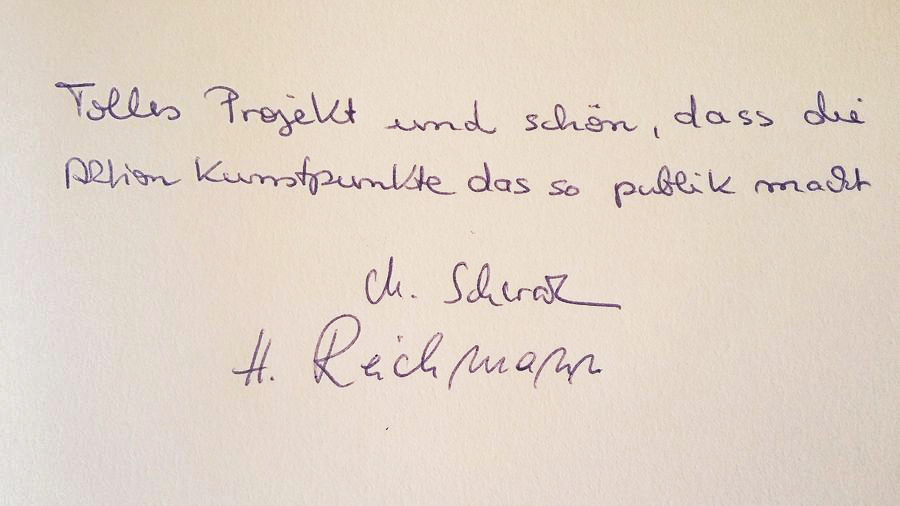 Tolles Projekt und schön, dass die
Aktion Kunstpunkte das so publik macht
Ch.
H. Reichmann